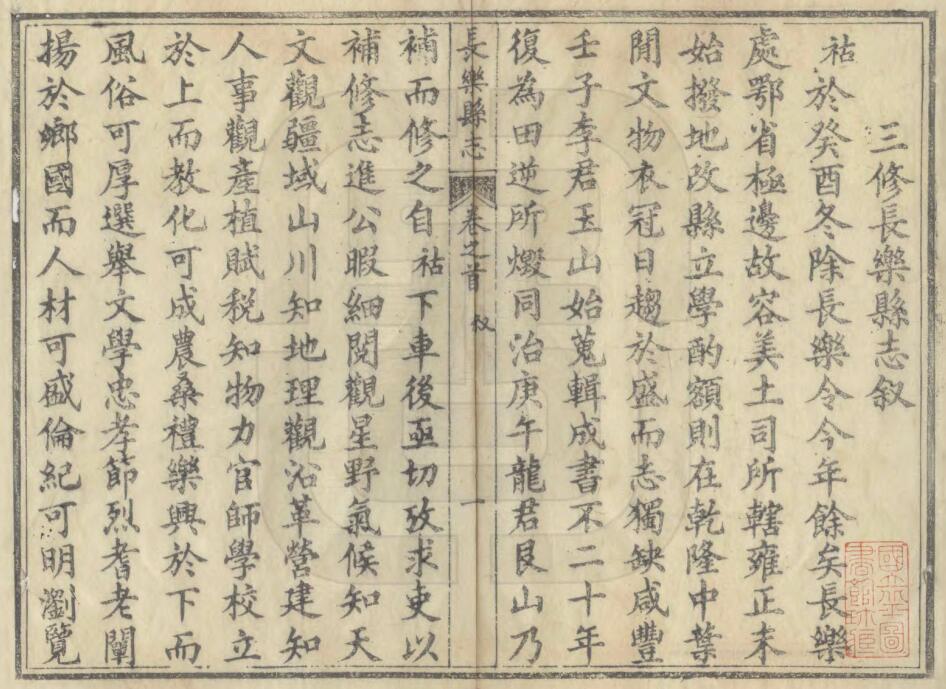 三修長樂縣志叙
祜於癸酉冬除長樂令今年餘矣長樂
處鄂省極邊故容美土司所轄雍正末
始撥地改縣立學酌額則在乾隆中葉
間文物衣冠日趨於盛而志獨缺咸豐
壬子李君玉山始蒐輯成書不二十年
復為田逆所燬同治庚午龍君艮山乃
長樂縣志
卷之首
叙
一
補而修之自祜下車後亟切攷求吏以
補修志進公暇細閱觀星野氣候知天
文觀疆域山川知地理觀沿革營建知
人事觀產植賦稅知物力官師學校立
於上而教化可成農桑禮樂興於下而
風俗可厚選舉文學忠孝節烈耆老闡
揚於鄉國而人材可盛倫紀可明瀏覽